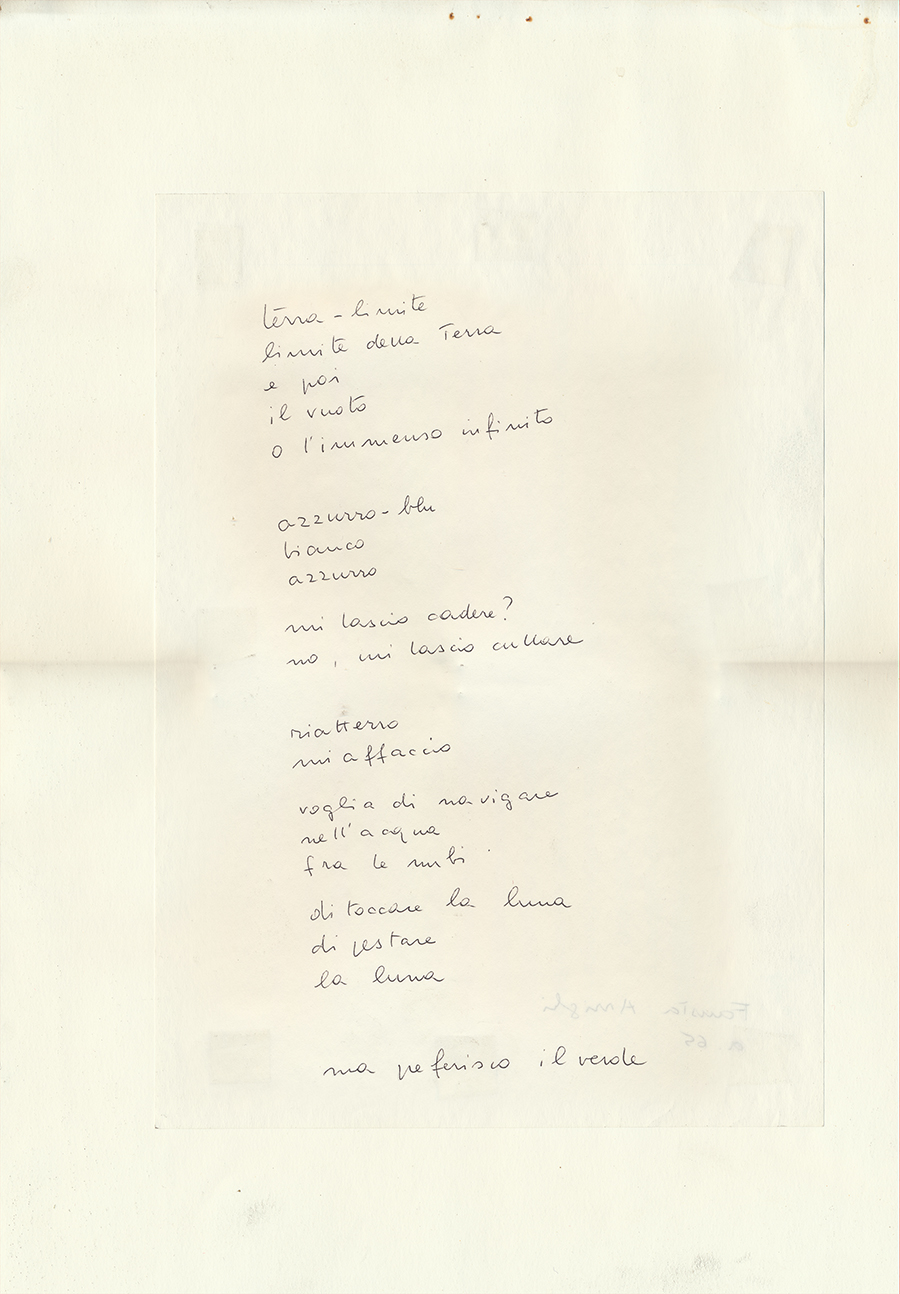 terra - limite
limite della Terra
e poi
il vuoto
o l'immenso infinito
azzurro - blu
bianco
azzurro
mi lascio cadere?
no, mi lascio cullare
riatterro
mi affaccio
voglia di navigare
nell'acqua
fra le nubi
di toccare la luna
di pestare
la luna
Fausta
a 65
ma preferisco il verde